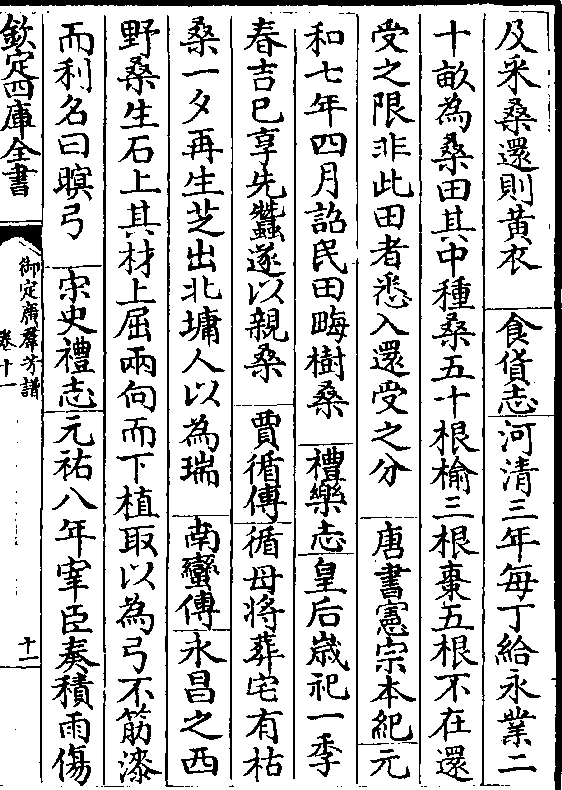 及采桑還則黃衣　食貨志河清三年每丁給永業二
十畝為桑田其中種桑五十根榆三根棗五根不在還
受之限非此田者悉入還受之分　唐書憲宗本紀元
和七年四月詔民田畮樹桑　禮樂志皇后歲祀一季
春吉巳享先蠶遂以親桑　賈循傳循母將葬宅有枯
桑一夕再生芝出北墉人以為瑞　南蠻傳永昌之西
野桑生石上其材上屈兩向而下植取以為弓不筋漆
而利名曰瞑弓　宋史禮志元祐八年宰臣奏積雨傷
欽定四庫全書
御定廣羣芳譜
卷十一
十二